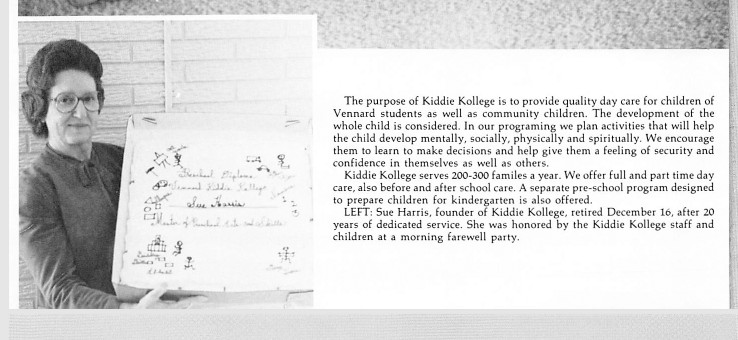 Preschool Diploma
Vennard Kiddie Kollege
Sue Harris
Master of Preschool Arts and Skills
The purpose of Kiddie Kollege is to provide quality day care for children of
Vennard students as well as community children. The development of the
whole child is considered. In our programing we plan activities that will help
the child develop mentally, socially, physically and spiritually. We encourage
them to learn to make decisions and help give them a feeling of security and
confidence in themselves as well as others.
Kiddie Kollege serves 200-300 familes a year. We offer full and part time day
care, also before and after school care. A separate pre-school program designed
to prepare children for kindergarten is also offered.
LEFT: Sue Harris, founder of Kiddie Kollege, retired December 16, after 20
years of dedicated service. She was honored by the Kiddie Kollege staff and
children at a morning farewell party.